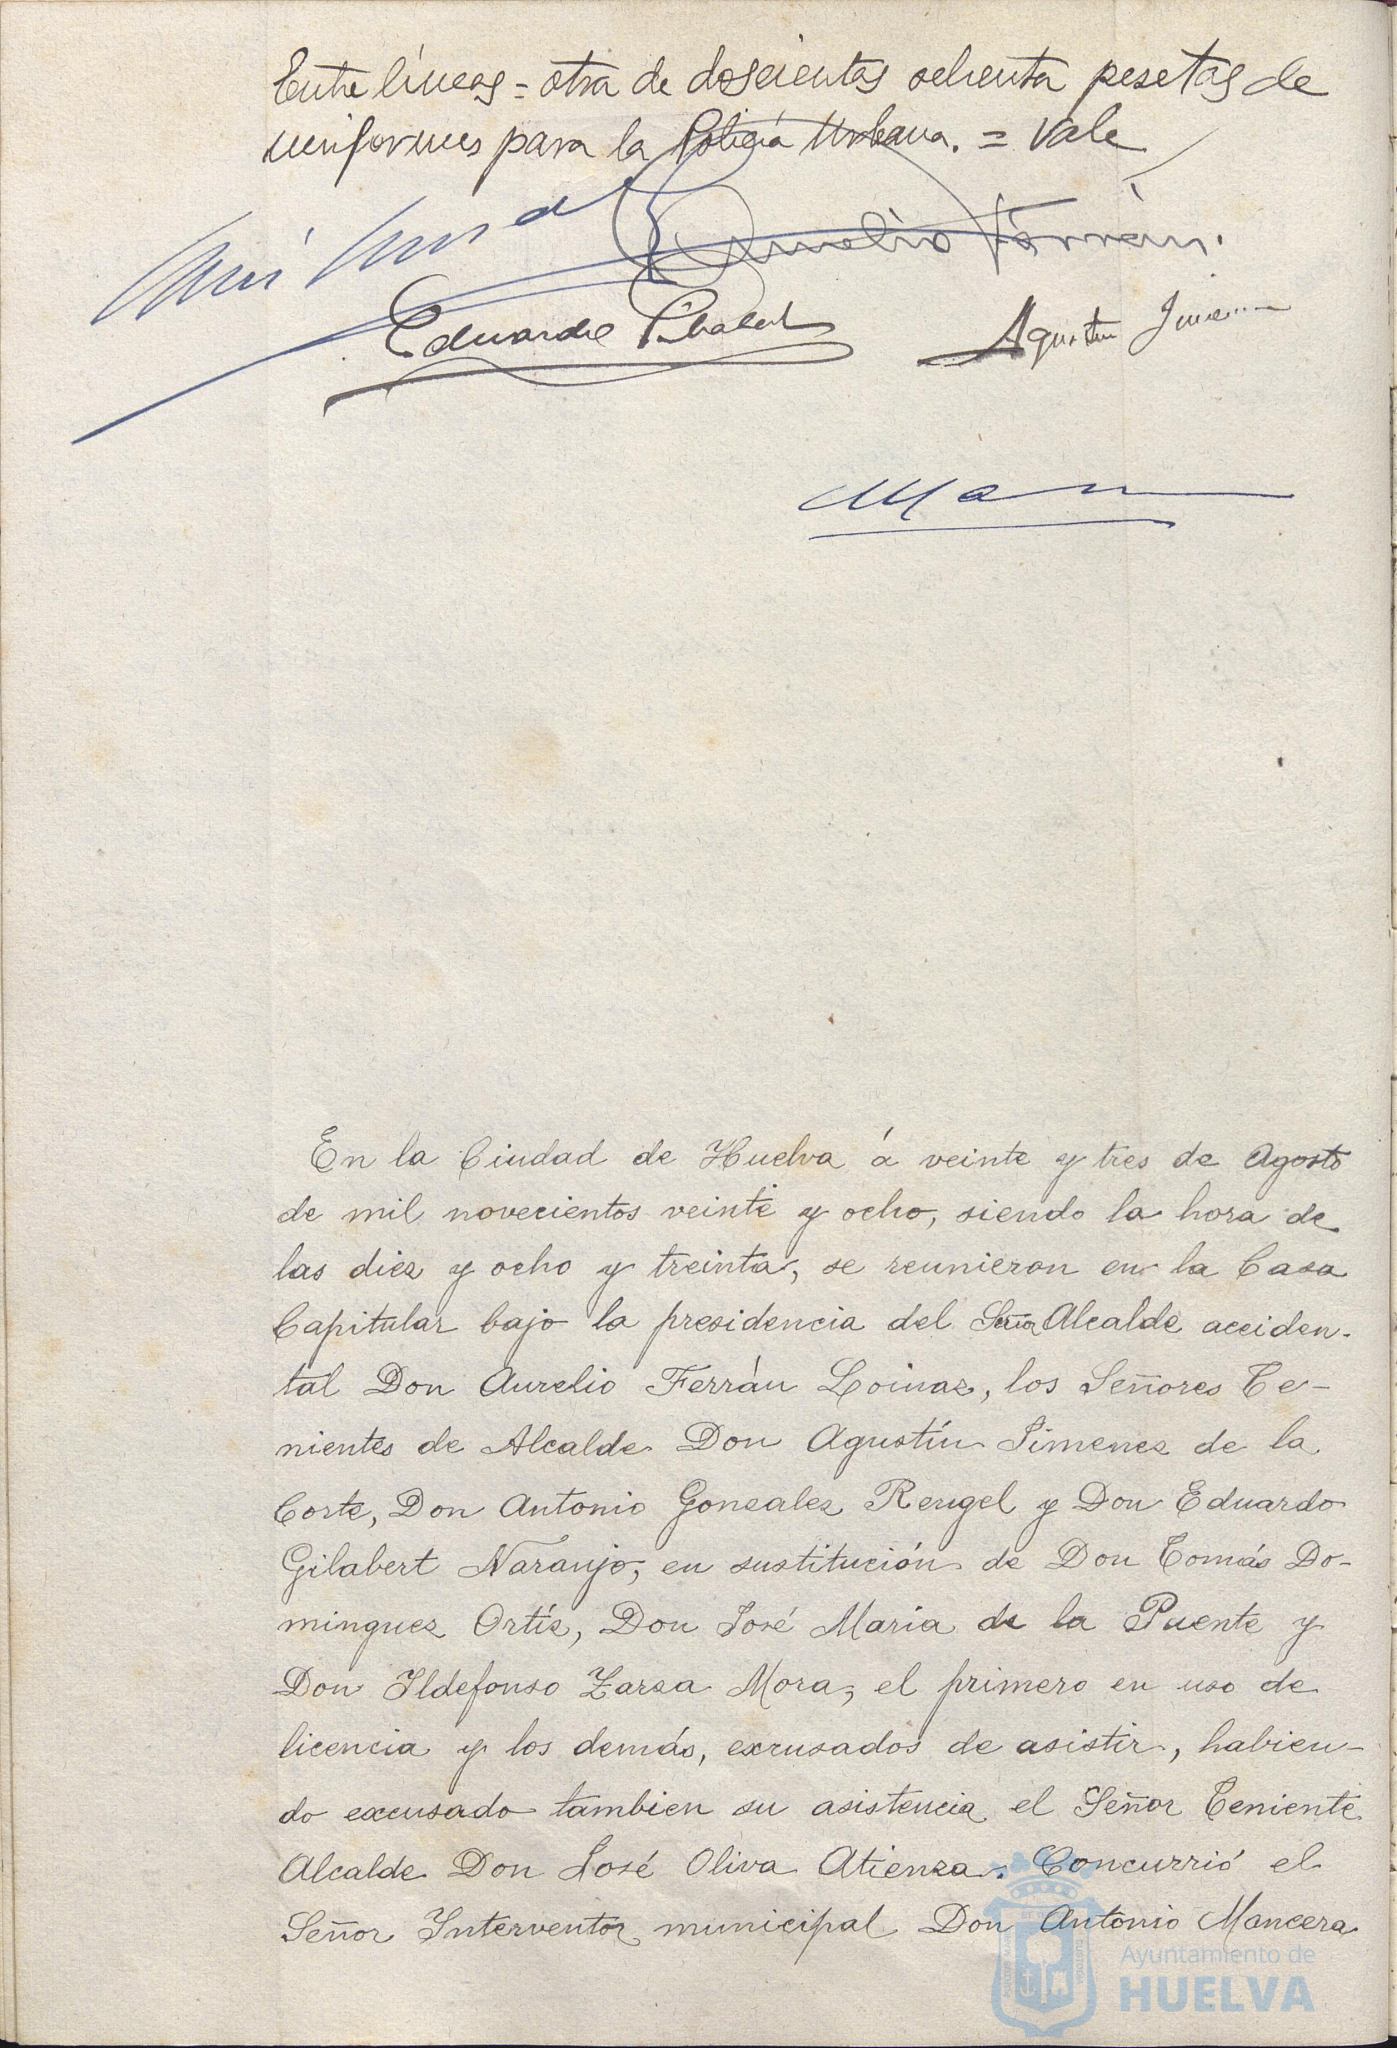 Entre líneas = otra de doscientas ochenta pesetas de
uniformes para la Policía Urbana. = Vale
Aurelio Ferrán.
Eduardo Gilabert
Agustín Jimenez
En la Ciudad de Huelva á veinte y tres de Agosto
de mil novecientos veinte y ocho, siendo la hora de
las diez y ocho y treinta, se reunieron en la Casa
Capitular bajo la presidencia del Señor Alcalde acciden-
tal Don Aurelio Ferrán Loinaz, los Señores Te-
nientes de Alcalde Don Agustín Jimenez de la
Corte, Don Antonio Gonzalez Rengel y Don Eduardo
Gilabert Naranjo, en sustitución de Don Tomás Do-
minguez Ortíz, Don José Maria de la Puente y
Don Ildefonso Zarza Mora, el primero en uso de
licencia y los demás, excusados de asistir, habien-
do excusado tambien su asistencia el Señor Teniente
Alcalde Don José Oliva Atienza. Concurrió el
Señor Interventor municipal Don Antonio Mancera
Ayuntamiento de
HUELVA